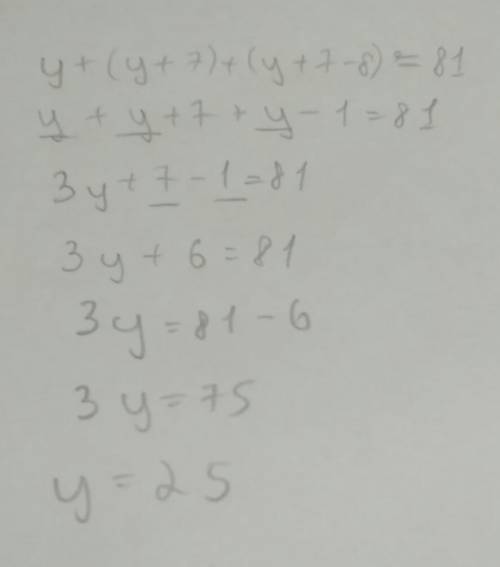 y + (y + 7) + (y + 7 - 8) = 81
y + y + 7 + y - 1 = 81
3y + 7 - 1 = 81
3y + 6 = 81
3y = 81 - 6
3y = 75
y = 25